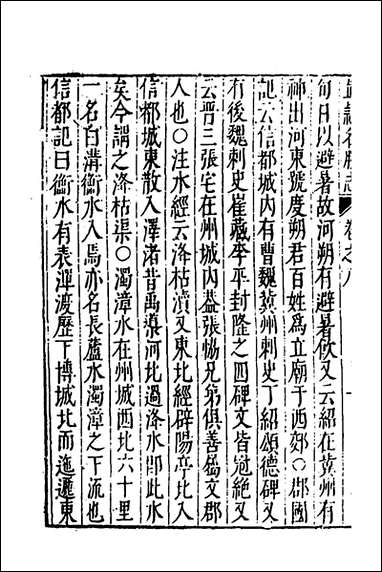 直隸名勝志 卷之八
旬日以避暑故河朔有避暑飲又云紹在冀州有
神出河東號度朔君百姓爲立廟于西郊○郡國
記云信都城內有曹魏冀州刺史丁紹頌德碑又
有後魏刺史崔藏李平封隆之四碑文皆冠絶又
云晋三張宅在州城內葢張恊兄弟俱善屬文郡
人也○注水經云洚枯瀆又東北經辟陽亭北入
信都城東散入澤渚昔禹導河北過洚水卽此水
矣今謂之洚枯渠○濁漳水在州城西北六十里
一名白溝衡水入焉亦名長蘆水濁漳之下流也
信都記曰衡水有袁渾渡歷下博城北而迤邐東